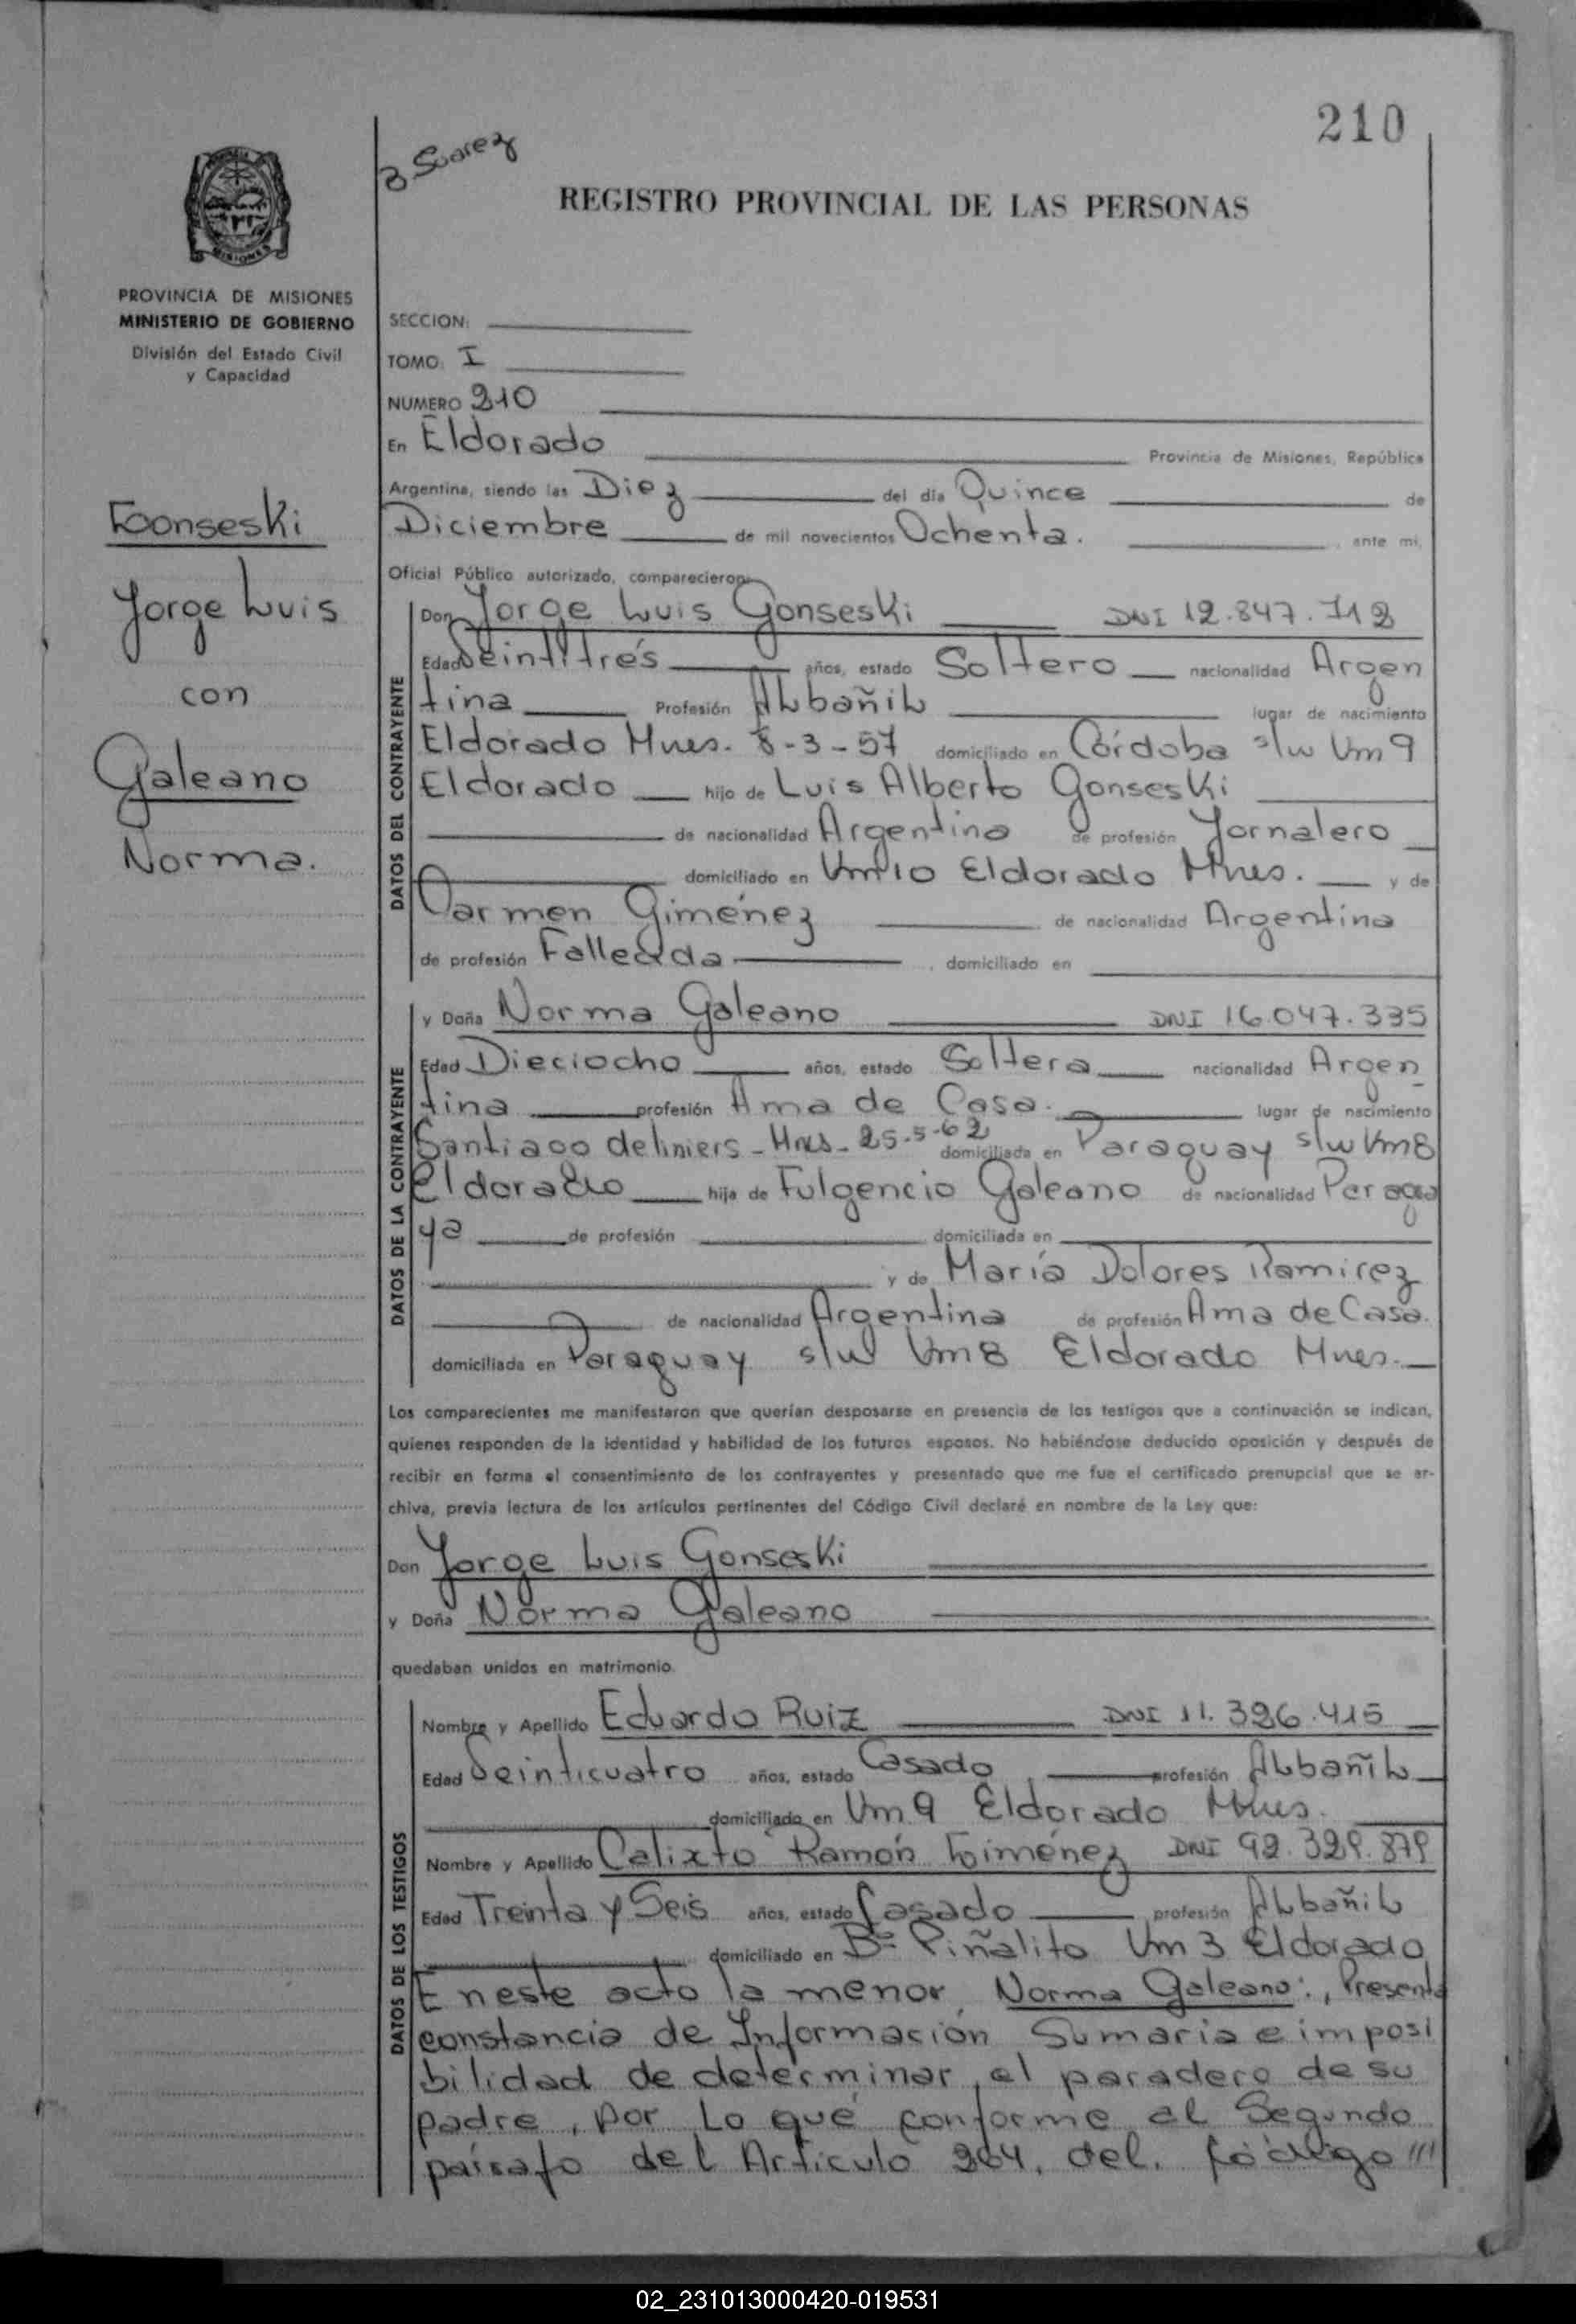 210
B Suarez
REGISTRO PROVINCIAL DE LAS PERSONAS
MISIONES
PROVINCIA DE MISIONES
MINISTERIO DE GOBIERNO
División del Estado Civil
y Capacidad
Gonseski
Jorge Luis
con
Galeano
Norma.
SECCION:
TOMO: I
NUMERO 210
En Eldorado Provincia de Misiones, República
Argentina, siendo las Diez del día Quince de
Diciembre de mil novecientos Ochenta. ante mí,
Oficial Público autorizado, comparecieron:
DATOS DEL CONTRAYENTE
Don Jorge Luis Gonseski DNI 12.847.712
Edad Veintitrés años, estado Soltero nacionalidad Argen
tina Profesión Albañil lugar de nacimiento
Eldorado Mnes. 8-3-57 domiciliado en Córdoba s/n Km 9
Eldorado hijo de Luis Alberto Gonseski
de nacionalidad Argentina de profesión Jornalero
domiciliado en Km 10 Eldorado Mnes. y de
Carmen Giménez de nacionalidad Argentina
de profesión Fallecida , domiciliado en
DATOS DE LA CONTRAYENTE
y Doña Norma Galeano DNI 16.047.335
Edad Dieciocho años, estado Soltera nacionalidad Argen
tina profesión Ama de Casa. lugar de nacimiento
Santiago de liniers - Mnes - 25-5-62 domiciliada en Paraguay s/n Km 8
Eldorado hija de Fulgencio Galeano de nacionalidad Paragua
ya de profesión domiciliada en
y de María Dolores Ramirez
de nacionalidad Argentina de profesión Ama de Casa.
domiciliada en Paraguay s/n Km 8 Eldorado Mnes.
Los comparecientes me manifestaron que querían desposarse en presencia de los testigos que a continuación se indican,
quienes responden de la identidad y habilidad de los futuros esposos. No habiéndose deducido oposición y después de
recibir en forma el consentimiento de los contrayentes y presentado que me fue el certificado prenupcial que se ar-
chiva, previa lectura de los artículos pertinentes del Código Civil declaré en nombre de la Ley que:
Don Jorge Luis Gonseski
y Doña Norma Galeano
quedaban unidos en matrimonio.
DATOS DE LOS TESTIGOS
Nombre y Apellido Eduardo Ruiz DNI 11.396.415
Edad Veinticuatro años, estado Casado profesión Albañil
domiciliado en Km 9 Eldorado Mnes.
Nombre y Apellido Calixto Ramón Giménez DNI 92.329.879
Edad Treinta y Seis años, estado Casado profesión Albañil
domiciliado en Bº Piñalito Km 3 Eldorado
En este acto la menor, Norma Galeano:, Presenta
constancia de Información Sumaria e imposi
bilidad de determinar el paradero de su
padre, por Lo que conforme al Segundo
párrafo del Artículo 264. del. Código ///
02_231013000420-019531